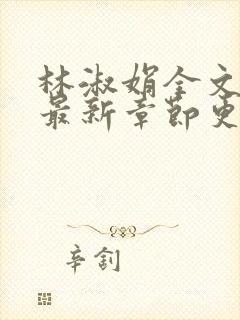 林淑娟全文
最新章节更
辛割